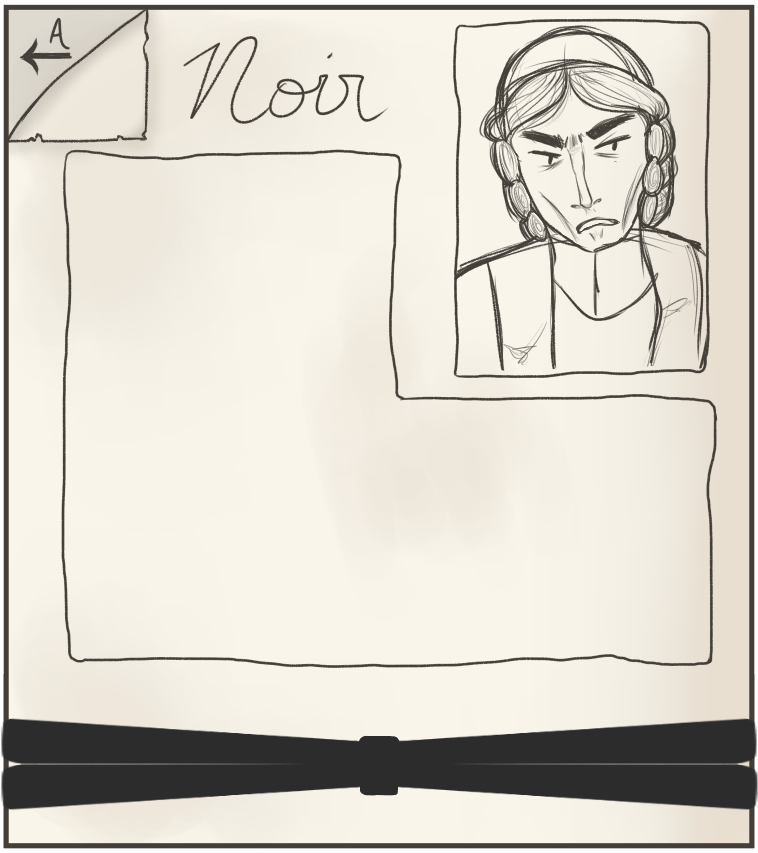 A
Noir